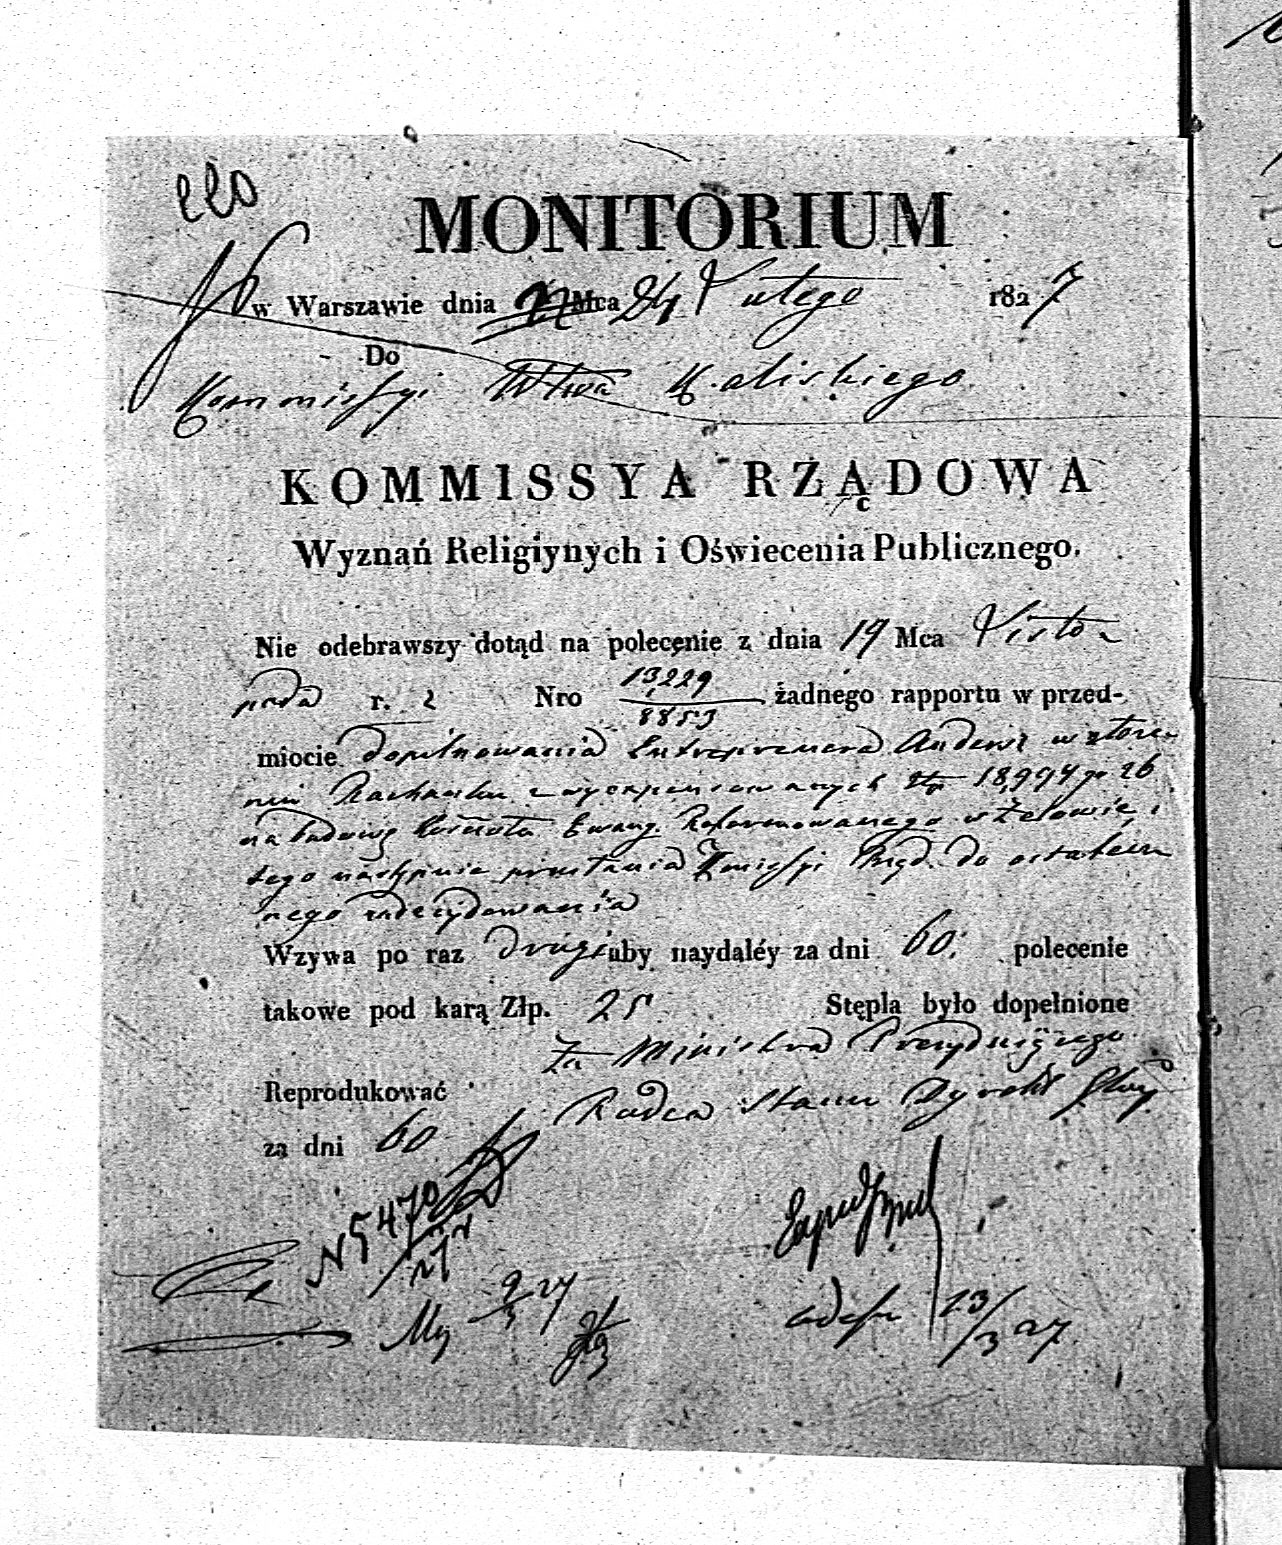 220
MONITORIUM
w Warszawie dnia Mca 24 Lutego 1827
Do
Kommissyi Wtwa Kaliskiego
KOMMISSYA RZĄDOWA
Wyznań Religiynych i Oświecenia Publicznego.
Nie odebrawszy dotąd na polecenie z dnia 19 Mca Listo-
pada r. z Nro 13229/8853 żadnego rapportu w przed-
miocie dopilnowania Entreprenera Anders w złoże-
niu Rachunku z wyexpensowanych Złp 18,994 gr 26
na budowę Kościoła Ewang. Reformowanego w Zelowie i
tego następnie przesłania Kmissyi Rząd. do ostatecz
nego zadecydowania
Wzywa po raz drugi aby naydaléy za dni 60. polecenie
takowe pod karą Złp. 25 Stępla było dopełnione
Za Ministra Prezyduiącego
Reprodukować
Radca Stanu Dyrekt
za dni 60
N 5470
My 9/3 27
13/3 27